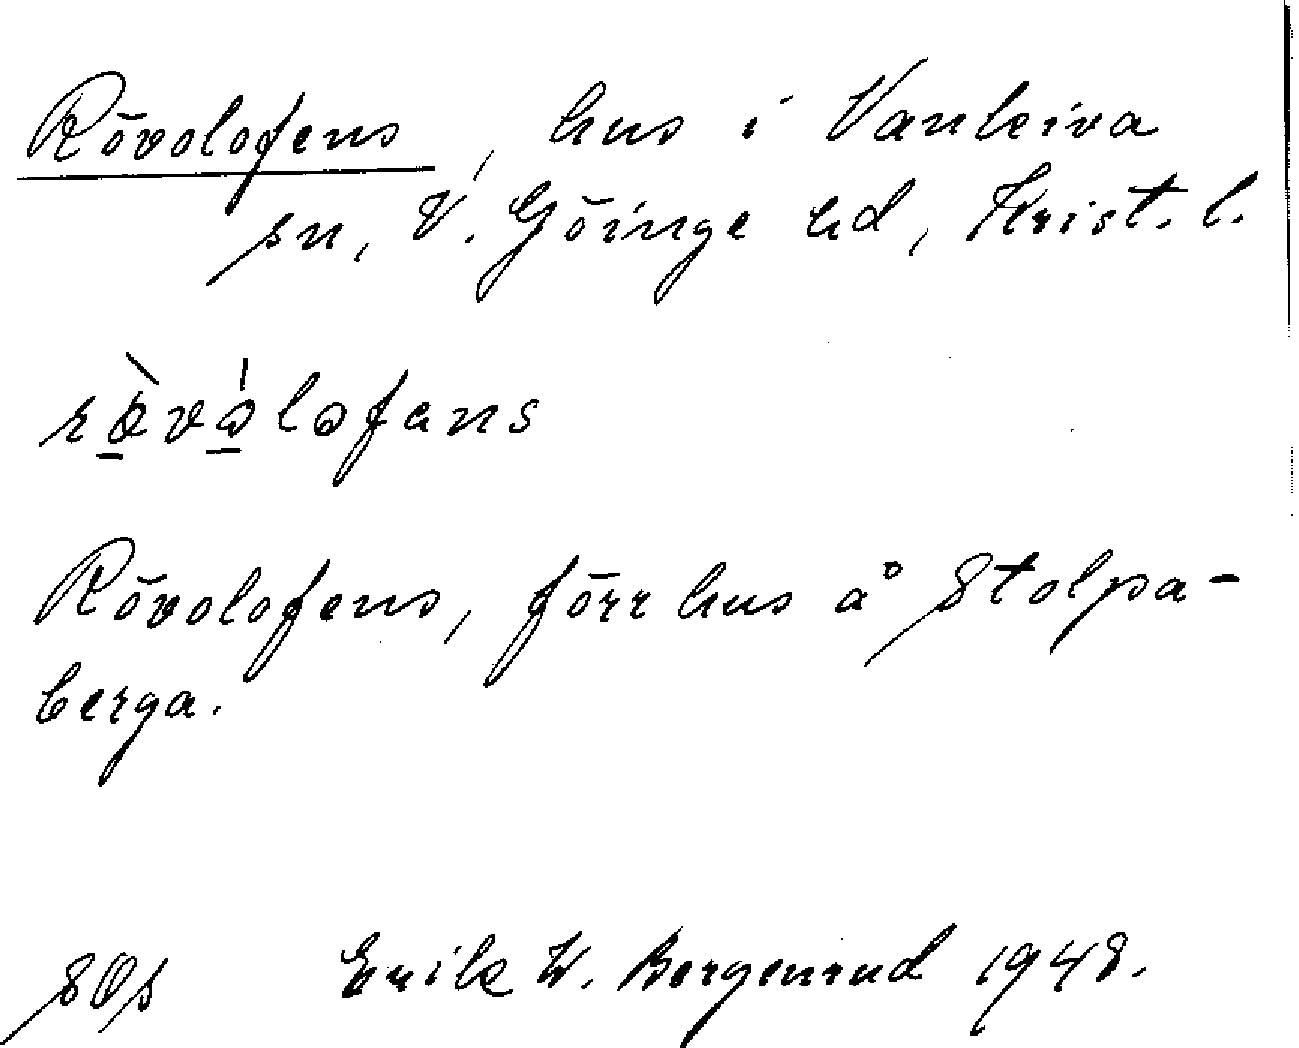 Rövolofens, hus i Vankiva
sn, V. Göinge hd, Krist. l.
rövolofans
Rövolofens, förr hus å Stolpa-
berga.
Erik W. Bergenrud 1948.